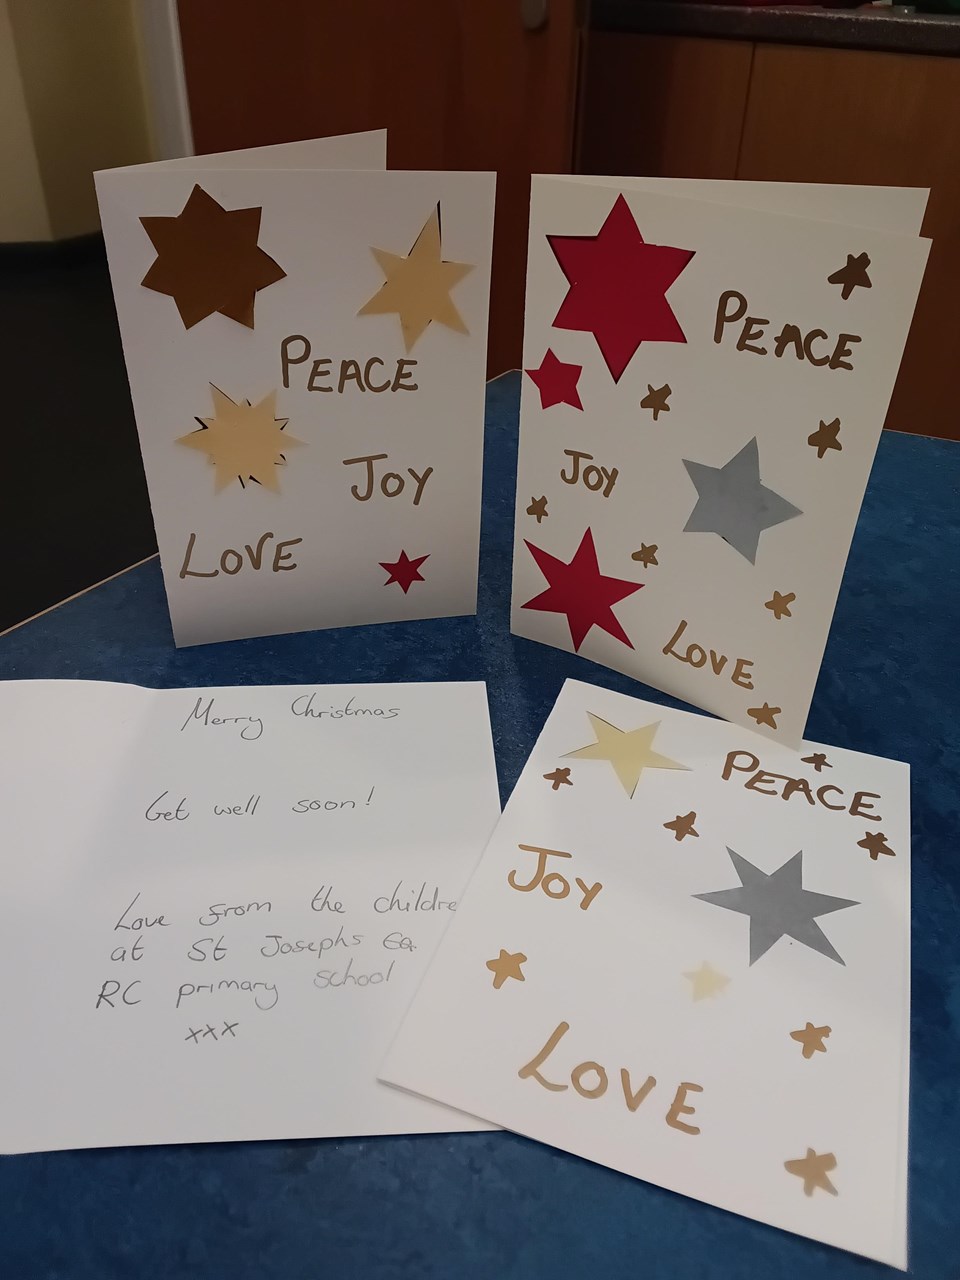 PEACE
JOY
LOVE
PEACE
JOY
LOVE
Merry Christmas
Get well soon!
Love from the childre
at St Josephs
RC primary school
xxx
PEACE
JOY
LOVE